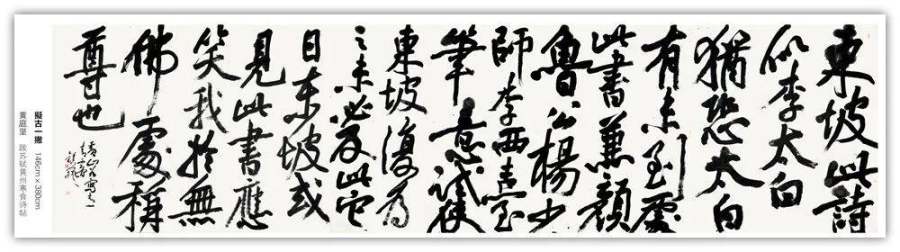 東坡此詩
似李太白
猶恐太白
有未到處
此書兼顏
魯公楊少
師李西臺
筆意試使
東坡復為
之未必及此它
日東坡或
見此書應
笑我於無
佛處稱
尊也
擬古一 146cm×380cm
黃庭堅 跋苏轼黃州寒食诗帖